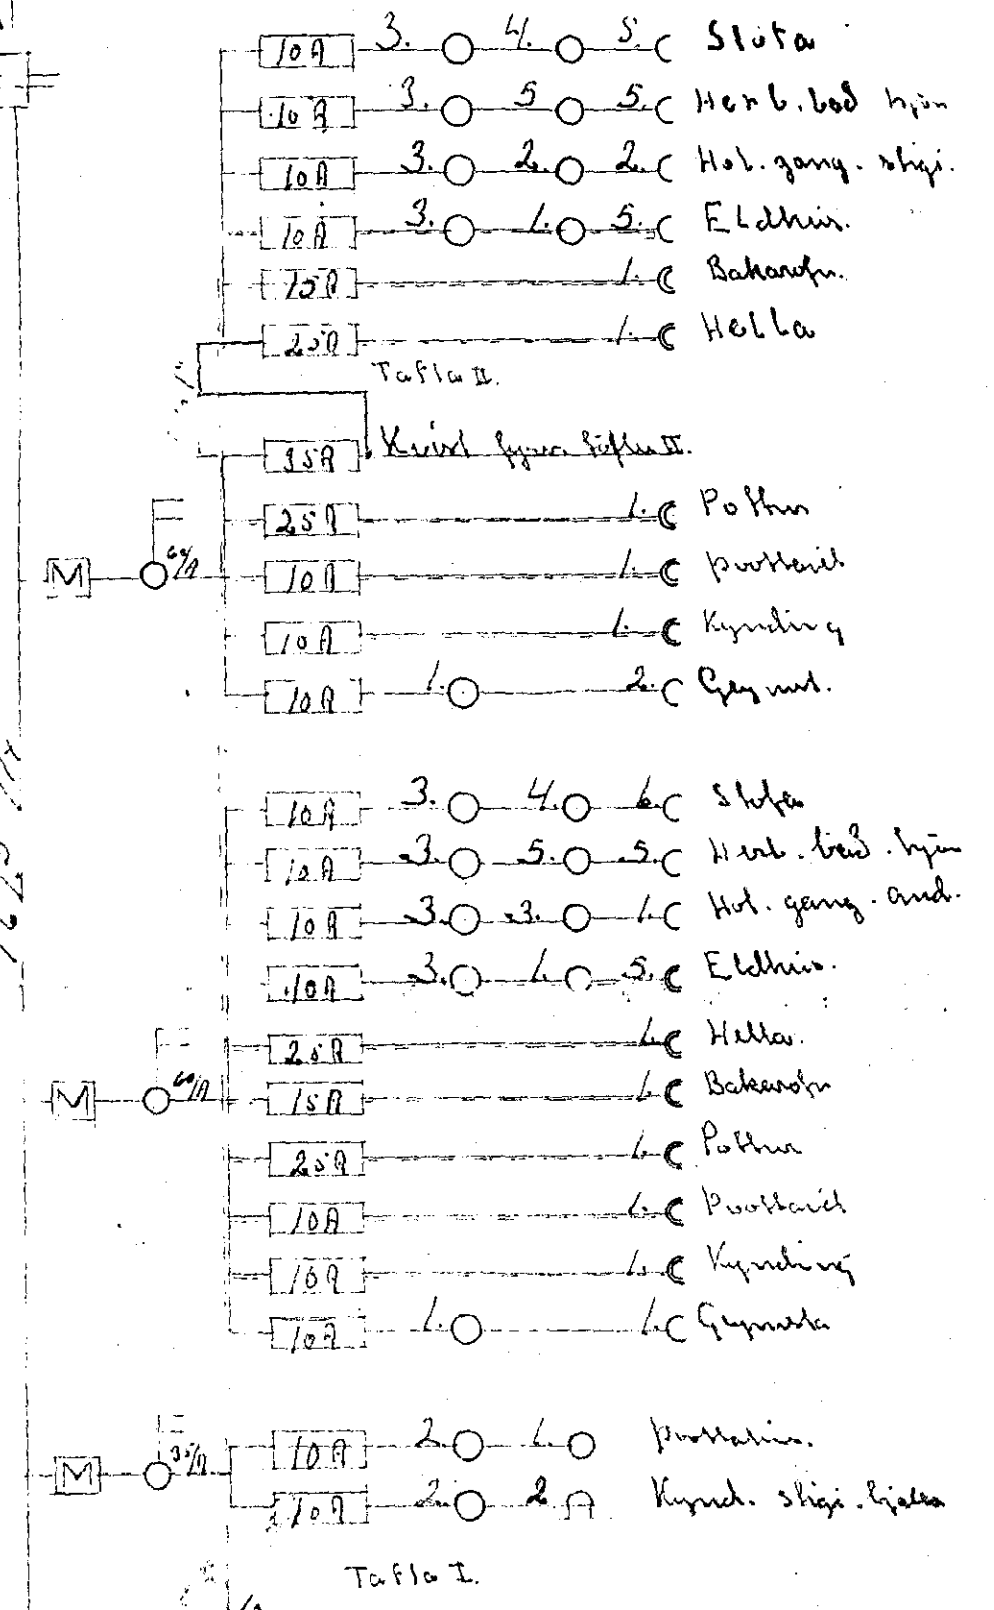 10A 3. 4. 5. Stofa
10A 3. 5 5. Herb. bað hjón
10A 3. 2. 2. Hol. gang. stigi.
10A 3. 1. 5. Eldhús.
15A 1. Bakarofn.
25A 1. Hella
Tafla II.
35A Kvísl fyrir töflu II.
25A 1. Pottur
M 60/A 10A 1. Þvottavél
10A 1. Kynding
10A 1. 2. Geymsl.
10A 3. 4. 6 Stofa
10A 3. 5. 5. Herb. bað. hjón
10A 3. 3. 1. Hol. gang. and.
10A 3. 1. 5. Eldhús.
25A 1. Hella.
M 60/A 15A 1. Bakarofn
25A 1. Pottur
10A 1. Þvottavél
10A 1. Kynding
10A 1. 1. Geymsla
M 35/A 10A 2. 1. Þvottahús.
10A 2. 2 Kynd. stigi.
Tafla I.